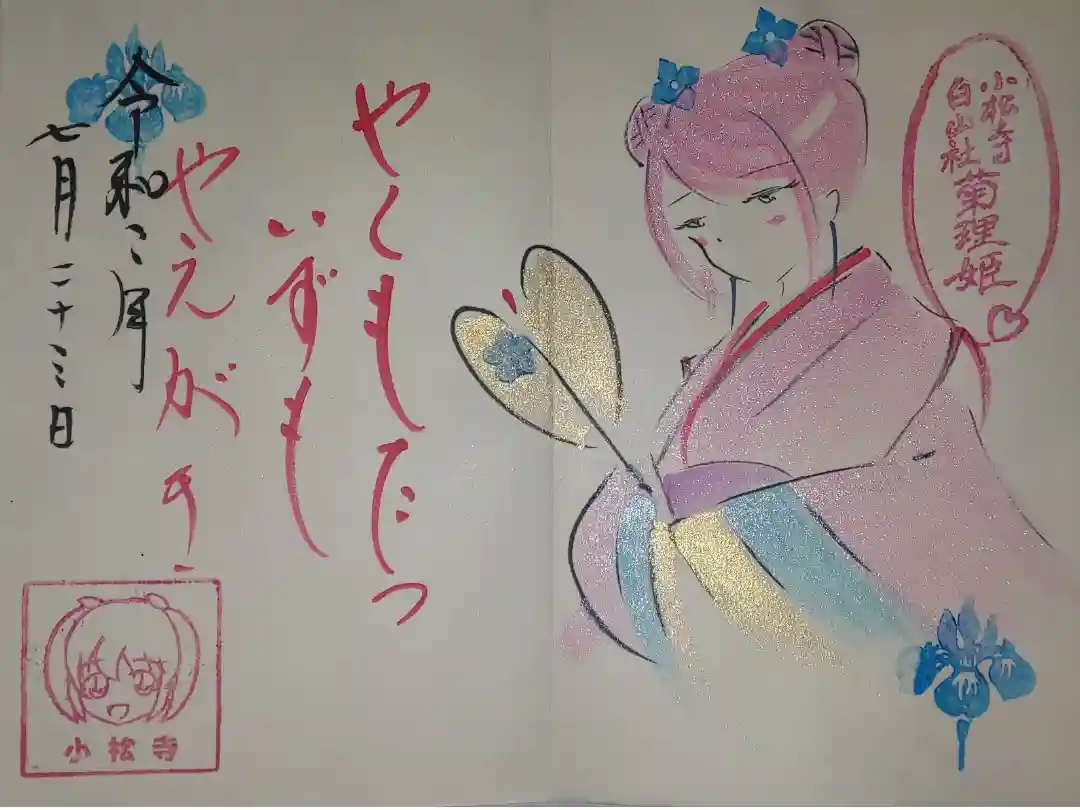 小松寺
白山社
菊理姫
やくもたつ
いずも
やえがき
令和三年
七月二十三日
小松寺